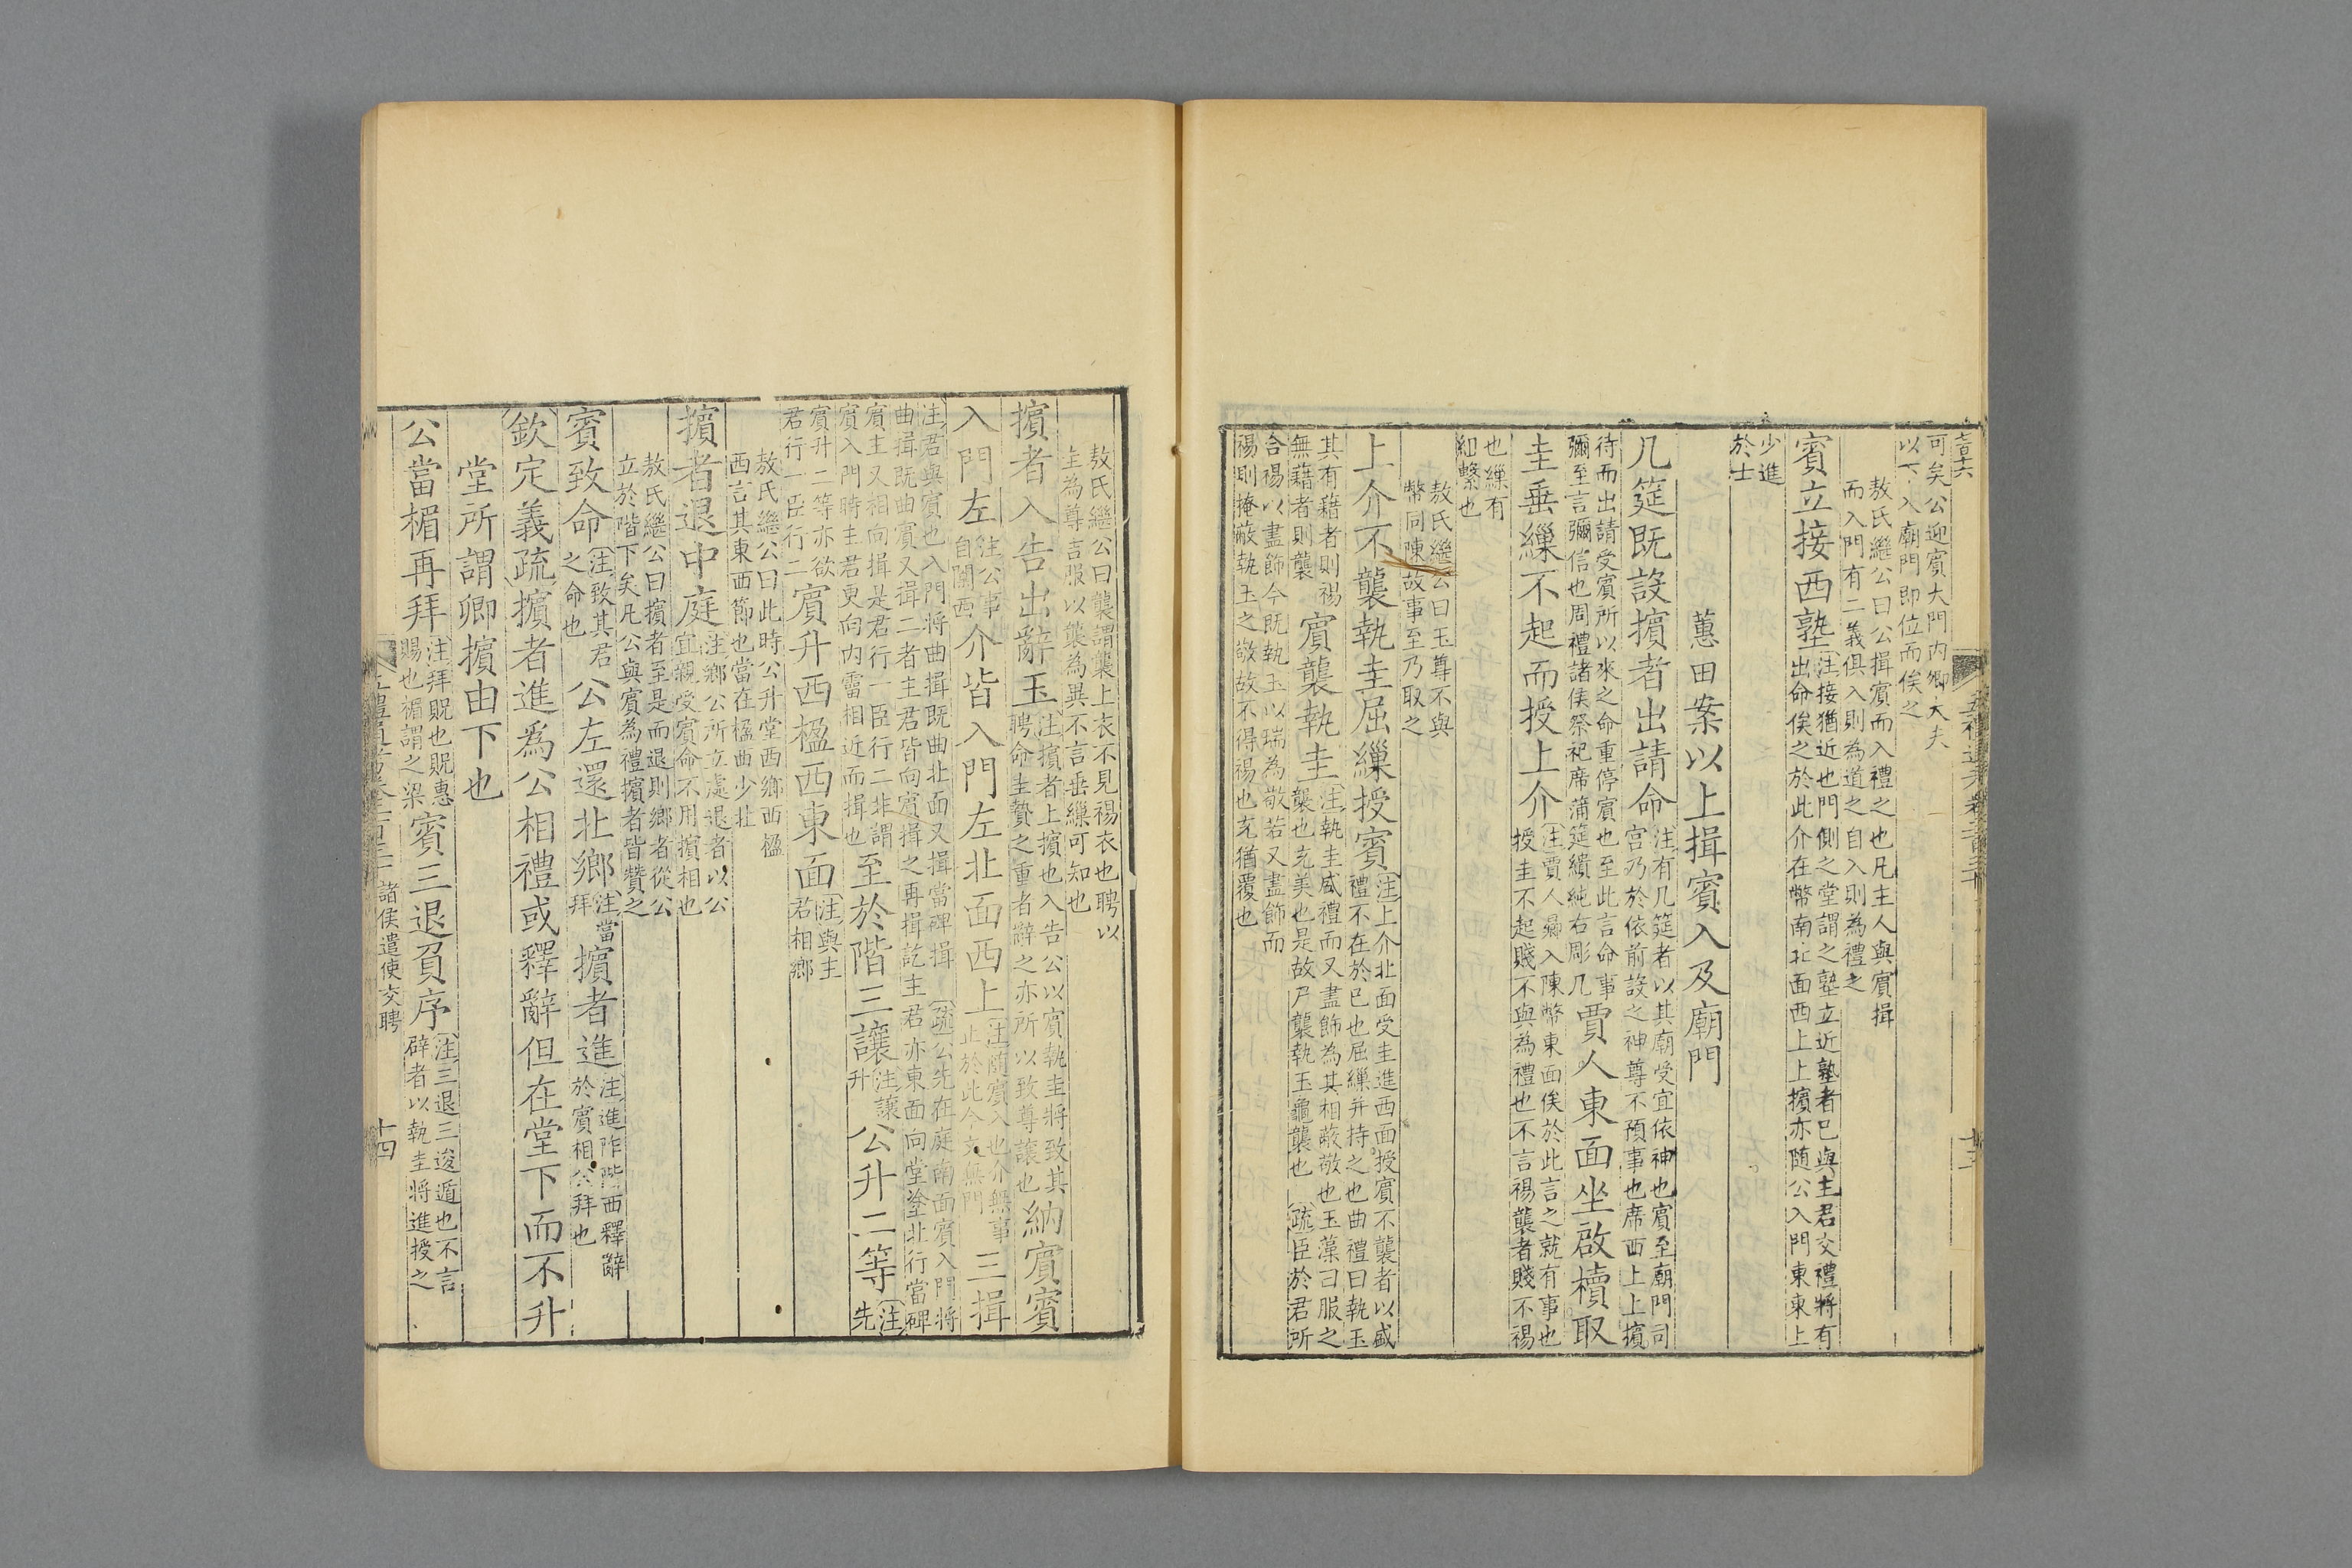 可矣公迎賓大門内卿大夫
以下入廟門即位而俟之
敖氏繼公曰公揖賓而入禮之也凡主人與賓揖
而入門有二義俱入則為道之自入則為禮之
賓立接西塾
注接猶近也門側之堂謂之塾立近塾者已與主君交禮將有
出命俟之於此介在幣南北面西上上擯亦随公入門東東上
少進
於士
蕙田案以上揖賓入及廟門
几筵既設擯者出請命
注有几筵者以其廟受宜依神也賓至廟門司
宫乃於依前設之神尊不預事也席西上上擯
待而出請受賓所以來之命重停賓也至此言命事
彌至言彌信也周禮諸侯祭祀席蒲筵繢純右彫几
賈人東面坐啟櫝取
圭垂繅不起而授上介
注賈人鄉入陳幣東面俟於此言之就有事也
授圭不起賤不與為禮也不言裼襲者賤不裼
也繅有
組繫也
敖氏繼公曰玉尊不與
幣同陳故事至乃取之
上介不襲執圭屈繅授賓
注上介北面受圭進西面授賓不襲者以盛
禮不在於已也屈繅并持之也曲禮曰執玉
其有藉者則裼
無藉者則襲
賓襲執圭
注執圭盛禮而又盡飾為其相蔽敬也玉藻曰服之
襲也充美也是故尸襲執玉龜襲也
疏臣於君所
合裼以盡飾今既執玉以瑞為敬若又盡飾而
裼則掩蔽執玉之敬故不得裼也充猶覆也
敖氏繼公曰襲謂襲上衣不見裼衣也聘以
主為尊吉服以襲為異不言垂繅可知也
擯者入告出辭玉
注擯者上擯也入告公以賓執圭將致其
聘命圭贄之重者辭之亦所以致尊讓也
納賓賓
入門左
注公事
自闑西
介皆入門左北面西上
注随賓入也介無事
止於此今文無門
三揖
注君與賓也入門將曲揖既曲北面又揖當碑揖
疏公先在庭南面賓入門將
曲揖既曲賓又揖二者主君皆向賓揖之再揖訖主君亦東面向堂塗北行當碑
賓主又相向揖是君行一臣行二非謂
賓入門時主君更向内霤相近而揖也
至於階三讓
注讓
升
公升二等
注先
賓升二等亦欲
君行一臣行二
賓升西楹西東面
注與主
君相鄉
敖氏繼公曰此時公升堂西鄉西楹
西言其東西節也當在楹西少北
擯者退中庭
注鄉公所立處退者以公
宜親受賓命不用擯相也
敖氏繼公曰擯者至是而退則鄉者從公
立於階下矣凡公與賓為禮擯者皆贊之
賓致命
注致其君
之命也
公左還北鄉
注當
拜
擯者進
注進阼階西釋辭
於賓相公拜也
欽定義疏擯者進爲公相禮或釋辭但在堂下而不升
堂所謂卿擯由下也
公當楣再拜
注拜貺也貺惠
賜也楣謂之梁
賓三退負序
注三退三逡遁也不言
辟者以執圭將進授之
諸侯遣使交聘
十四